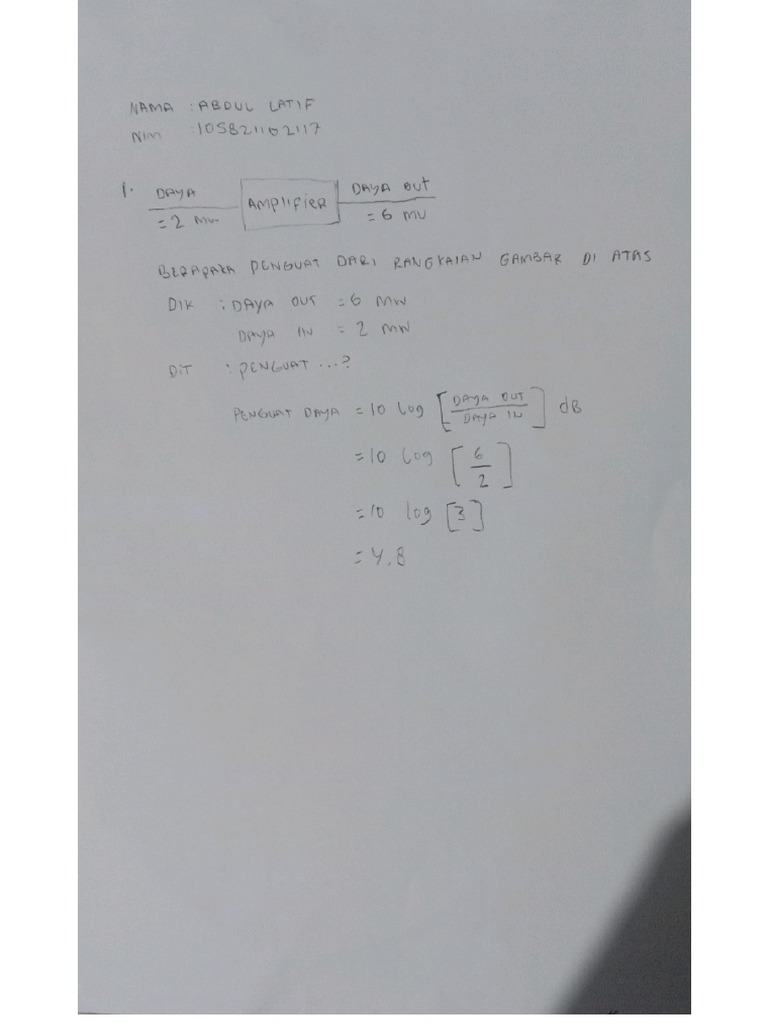 NAMA : ABDUL LATIF
NIM : 105821102117
1. DAYA = 2 MW
AMPLIFIER
DAYA OUT = 6 MW
BERAPAKA PENGUAT DARI RANGKAIAN GAMBAR DI ATAS
DIK : DAYA OUT = 6 MW
DAYA IN = 2 MW
DIT : PENGUAT ...?
PENGUAT DAYA = 10 log [DAYA OUT / DAYA IN] dB
= 10 log [6 / 2]
= 10 log [3]
= 4.8